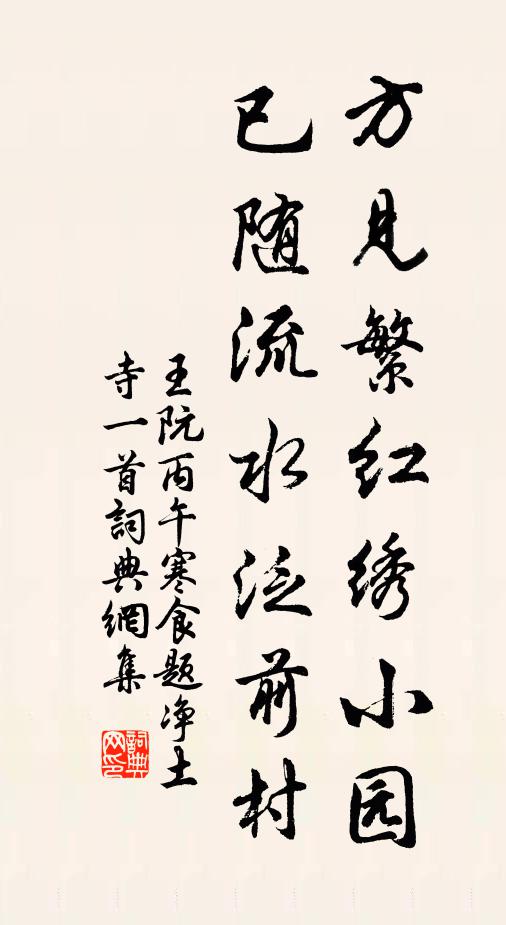 方见繁红绣小园
已随流水泛前村
王阮丙午寒食题净土
寺一首詞典網集
詞典
网印